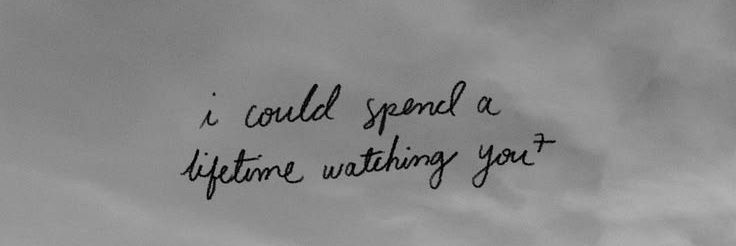 i could spend a
lifetime watching you⁷